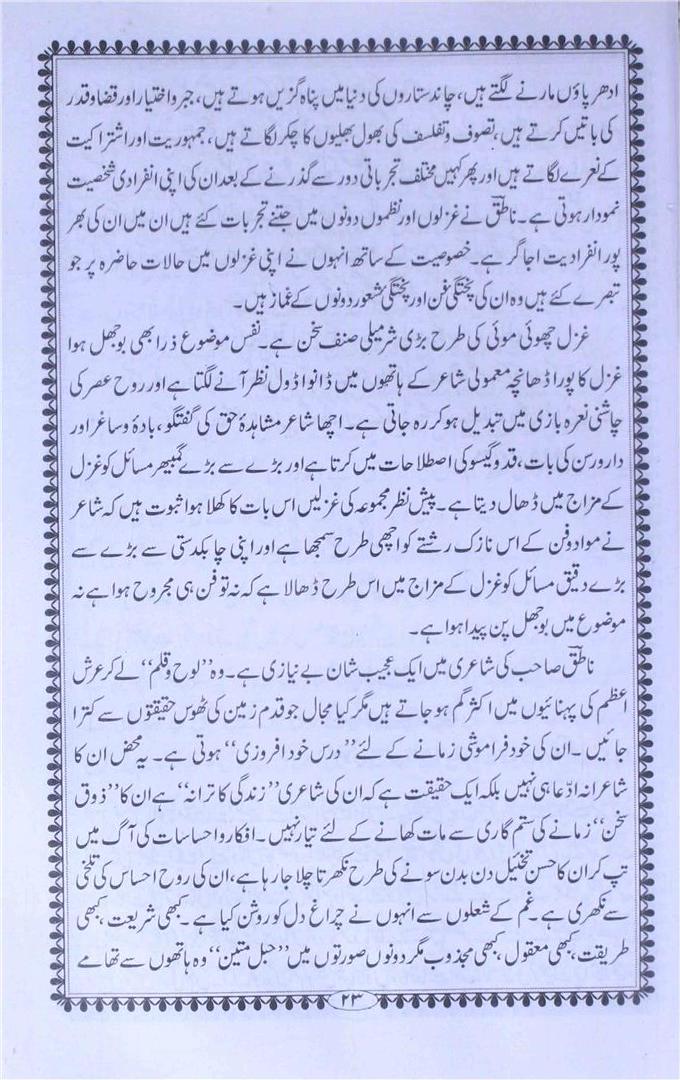 ادھر پاؤں مارنے لگتے ہیں، چاند ستاروں کی دنیا میں پناہ گزیں ہوتے ہیں، جبر و اختیار اور قضا و قدر
کی باتیں کرتے ہیں، تصوف و تفلسف کی بھول بھلیوں کا چکر لگاتے ہیں، جمہوریت اور اشتراکیت
کے نعرے لگاتے ہیں اور پھر کہیں مختلف تجرباتی دور سے گذرنے کے بعد ان کی اپنی انفرادی شخصیت
نمودار ہوتی ہے۔ ناطقؔ نے غزلوں اور نظموں دونوں میں جتنے تجربات کئے ہیں ان میں ان کی بھر
پور انفرادیت اجاگر ہے۔ خصوصیت کے ساتھ انہوں نے اپنی غزلوں میں حالات حاضرہ پر جو
تبصرے کئے ہیں وہ ان کی پختگیٔ فن اور پختگیٔ شعور دونوں کے غماز ہیں۔
غزل چھوئی موئی کی طرح بڑی شرمیلی صنف سخن ہے۔ نفس موضوع ذرا بھی بوجھل ہوا
غزل کا پورا ڈھانچہ معمولی شاعر کے ہاتھوں میں ڈانوا ڈول نظر آنے لگتا ہے اور روح عصر کی
چاشنی نعرہ بازی میں تبدیل ہو کر رہ جاتی ہے۔ اچھا شاعر مشاہدۂ حق کی گفتگو، بادۂ و ساغر اور
دار و رسن کی بات، قد و گیسو کی اصطلاحات میں کرتا ہے اور بڑے سے بڑے گمبھیر مسائل کو غزل
کے مزاج میں ڈھال دیتا ہے۔ پیش نظر مجموعہ کی غزلیں اس بات کا کھلا ہوا ثبوت ہیں کہ شاعر
نے مواد و فن کے اس نازک رشتے کو اچھی طرح سمجھا ہے اور اپنی چابکدستی سے بڑے سے
بڑے دقیق مسائل کو غزل کے مزاج میں اس طرح ڈھالا ہے کہ نہ تو فن ہی مجروح ہوا ہے نہ
موضوع میں بوجھل پن پیدا ہوا ہے۔
ناطقؔ صاحب کی شاعری میں ایک عجیب شان بے نیازی ہے۔ وہ ’’لوح و قلم‘‘ لے کر عرش
اعظم کی پہنائیوں میں اکثر گم ہو جاتے ہیں مگر کیا مجال جو قدم زمین کی ٹھوس حقیقتوں سے کترا
جائیں۔ ان کی خود فراموشی زمانے کے لئے ’’درس خود افروزی‘‘ ہوتی ہے۔ یہ محض ان کا
شاعرانہ ادّعا ہی نہیں بلکہ ایک حقیقت ہے کہ ان کی شاعری ’’زندگی کا ترانہ‘‘ ہے ان کا ’’ذوق
سخن‘‘ زمانے کی ستم گاری سے مات کھانے کے لئے تیار نہیں۔ افکار و احساسات کی آگ میں
تپ کر ان کا حسن تخئیل دن بدن سونے کی طرح نکھرتا چلا جا رہا ہے، ان کی روح احساس کی تلخی
سے نکھری ہے۔ غم کے شعلوں سے انہوں نے چراغ دل کو روشن کیا ہے۔ کبھی شریعت، کبھی
طریقت، کبھی معقول، کبھی مجذوب مگر دونوں صورتوں میں ’’حبل متین‘‘ وہ ہاتھوں سے تھامے
۲۳